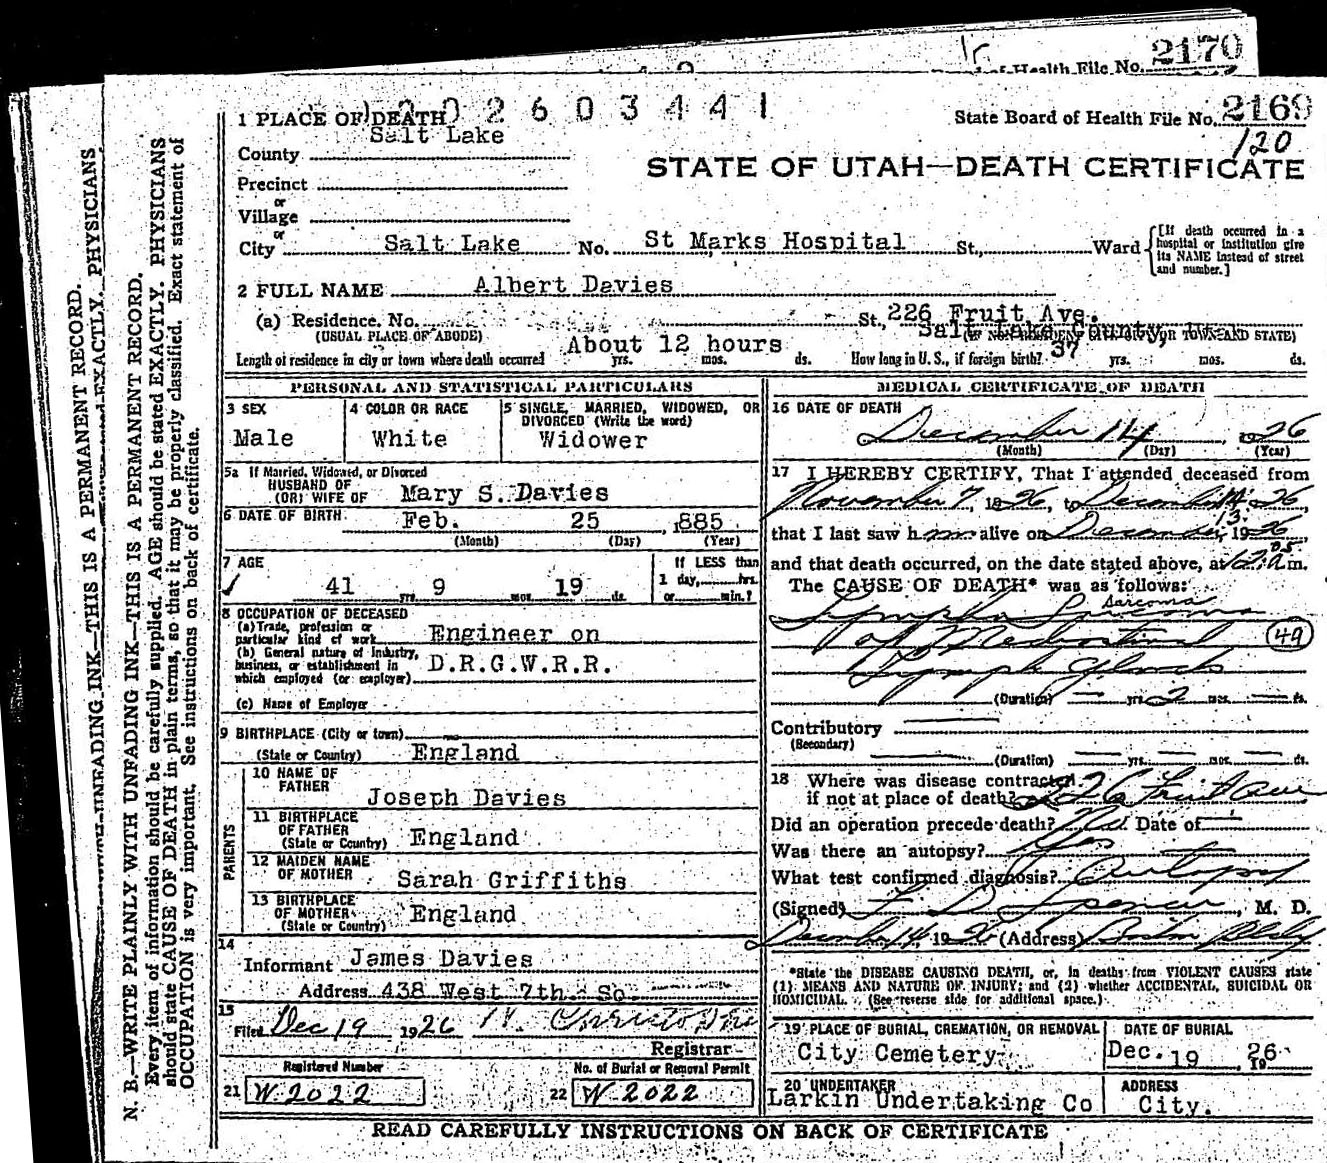 2170
of Health File No.
1 PLACE OF DEATH 2 6 0 3 4 4 1
State Board of Health File No. 2169
120
Salt Lake
County
STATE OF UTAH—DEATH CERTIFICATE
Precinct
or
Village
or
City Salt Lake No. St Marks Hospital St., Ward
[If death occurred in a
hospital or institution give
its NAME instead of street
and number.]
2 FULL NAME Albert Davies
(a) Residence. No. St., 226 Fruit Ave.
Salt Lake County,
(USUAL PLACE OF ABODE)
(IF NON-RESIDENT GIVE CITY OR TOWN AND STATE)
About 12 hours
Length of residence in city or town where death occurred yrs. mos. ds. How long in U. S., if foreign birth? 37 yrs. mos. ds.
PERSONAL AND STATISTICAL PARTICULARS
3 SEX
Male
4 COLOR OR RACE
White
5 SINGLE, MARRIED, WIDOWED, OR
DIVORCED (Write the word)
Widower
5a If Married, Widowed, or Divorced
HUSBAND OF
(OR) WIFE OF Mary S. Davies
6 DATE OF BIRTH Feb. 25 , 1885
(Month) (Day) (Year)
7 AGE
41 yrs. 9 mos. 19 ds.
If LESS than
1 day, hrs.
or min.?
8 OCCUPATION OF DECEASED
(a) Trade, profession or
particular kind of work Engineer on
(b) General nature of industry,
business, or establishment in
which employed (or employer) D.R.G.W.R.R.
(c) Name of Employer
9 BIRTHPLACE (City or town)
(State or Country) England
PARENTS
10 NAME OF
FATHER
Joseph Davies
11 BIRTHPLACE
OF FATHER
(State or Country) England
12 MAIDEN NAME
OF MOTHER Sarah Griffiths
13 BIRTHPLACE
OF MOTHER
(State or Country) England
14
Informant James Davies
Address 438 West 7th. So.
15
Filed Dec 19 1926
Registrar
Registered Number
21 W 2022
No. of Burial or Removal Permit
22 W 2022
MEDICAL CERTIFICATE OF DEATH
16 DATE OF DEATH
December 14, 1926
(Month) (Day) (Year)
17 I HEREBY CERTIFY, That I attended deceased from
November 7, 1926, to December 14 1926,
that I last saw him alive on December 13, 1926
and that death occurred, on the date stated above, at 12:05 a m.
The CAUSE OF DEATH* was as follows:
Sarcoma
Lympho
of Mediastinal
Lymph Glands
49
(Duration) — yrs. 2 mos. — ds.
Contributory
(Secondary)
(Duration) — yrs. — mos. — ds.
18 Where was disease contracted
if not at place of death? 226 Fruit Ave
Did an operation precede death? No Date of —
Was there an autopsy? Yes
What test confirmed diagnosis? Autopsy
(Signed) F D Spencer, M. D.
Decemb 14, 1926 (Address)
*State the DISEASE CAUSING DEATH, or, in deaths from VIOLENT CAUSES state
(1) MEANS AND NATURE OF INJURY; and (2) whether ACCIDENTAL, SUICIDAL OR
HOMICIDAL. (See reverse side for additional space.)
19 PLACE OF BURIAL, CREMATION, OR REMOVAL
City Cemetery
DATE OF BURIAL
Dec. 19 1926
20 UNDERTAKER
Larkin Undertaking Co
ADDRESS
City.
READ CAREFULLY INSTRUCTIONS ON BACK OF CERTIFICATE
N. B.—WRITE PLAINLY WITH UNFADING INK—THIS IS A PERMANENT RECORD.
Every item of information should be carefully supplied. AGE should be stated EXACTLY. PHYSICIANS
should state CAUSE OF DEATH in plain terms, so that it may be properly classified. Exact statement of
OCCUPATION is very important. See instructions on back of certificate.
UNFADING INK—THIS IS A PERMANENT RECORD.
EXACTLY. PHYSICIANS